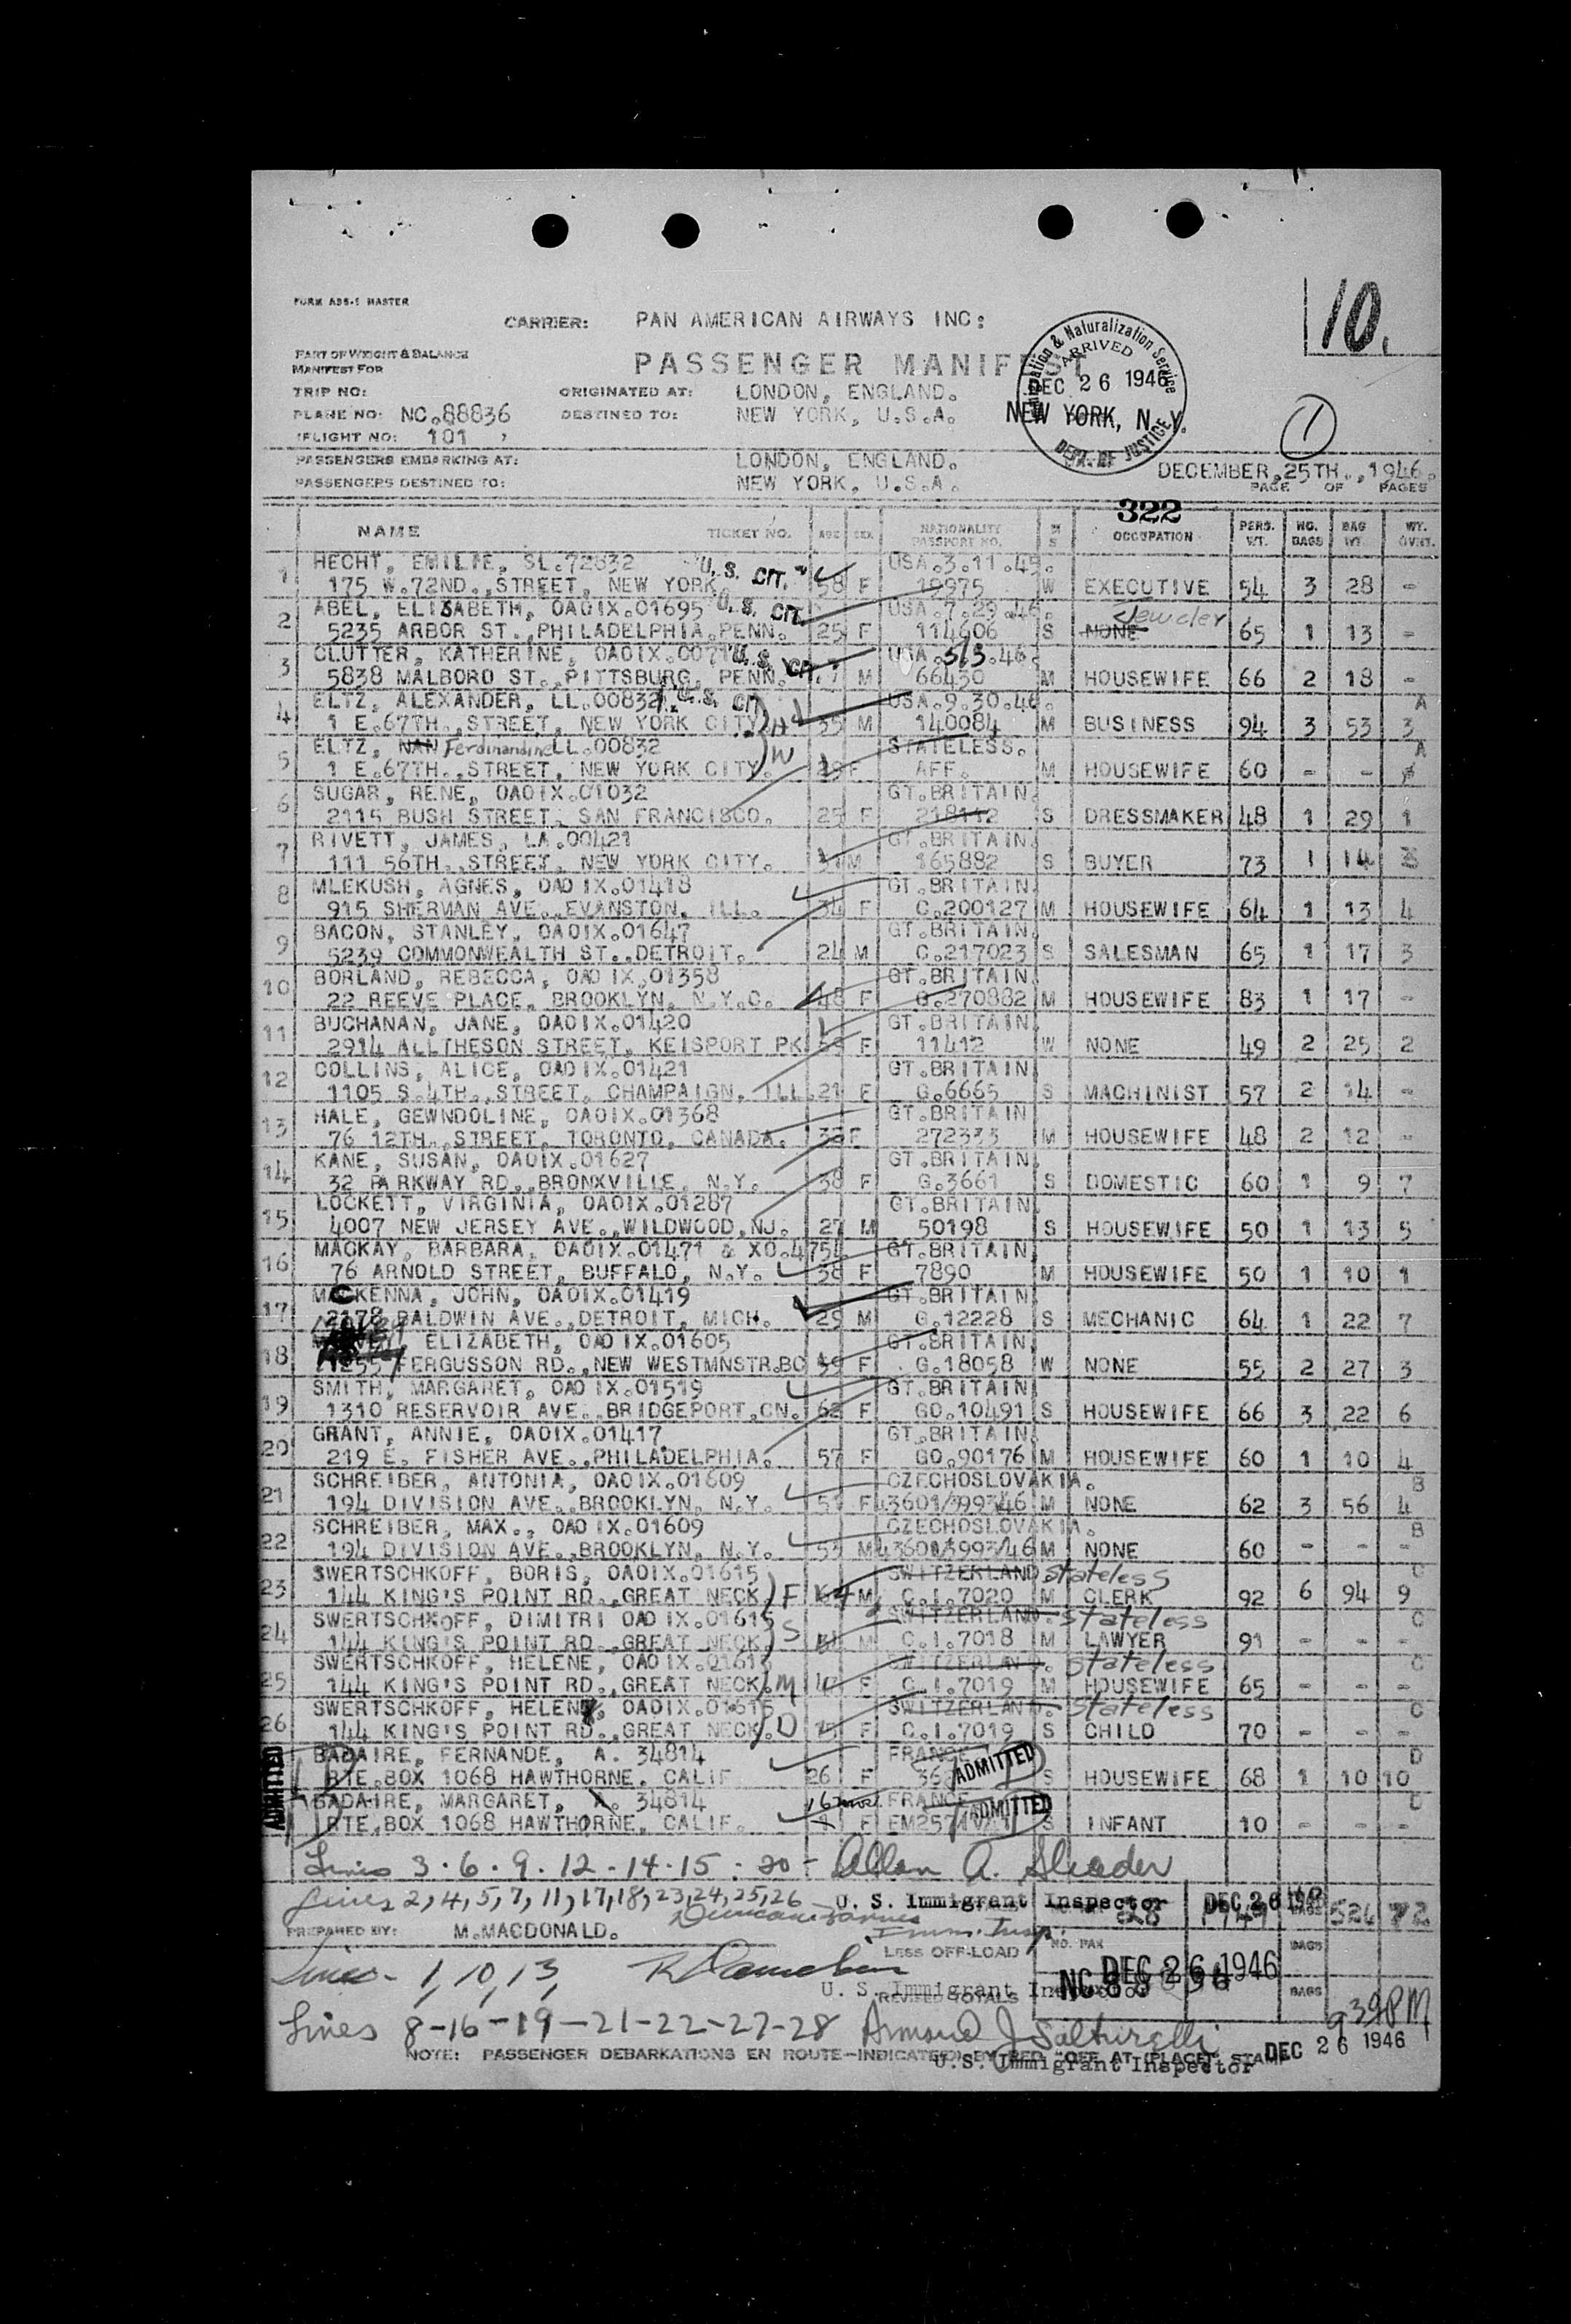 10.
FORM ABS-1 MASTER
CARRIER: PAN AMERICAN AIRWAYS INC:
PART OF WEIGHT & BALANCE
MANIFEST FOR
PASSENGER MANIFEST
Immigration & Naturalization Service
ARRIVED
DEC 26 1946
NEW YORK, N.Y.
DEPT. OF JUSTICE
TRIP NO: ORIGINATED AT: LONDON, ENGLAND.
PLANE NO: NC.88836 DESTINED TO: NEW YORK, U.S.A.
FLIGHT NO: 101
1
PASSENGERS EMBARKING AT: LONDON, ENGLAND.
PASSENGERS DESTINED TO: NEW YORK, U.S.A.
DECEMBER,25TH.,1946.
PAGE OF PAGES
322
NAME TICKET NO. AGE SEX NATIONALITY PASSPORT NO. M S OCCUPATION PERS. WT. NO. BAGS BAG WT. WT. OVHT.
1 HECHT, EMILIE, SL.72832 "U.S. CIT." USA.3.11.45.
175 W.72ND.,STREET, NEW YORK 58 F 19975 W EXECUTIVE 54 3 28 -
2 ABEL, ELIZABETH, OAOIX.01695 U.S. CIT. USA.7.29.46. Jeweler
5235 ARBOR ST.,PHILADELPHIA.PENN. 25 F 114606 S NONE 65 1 13 -
3 CLUTTER, KATHERINE, OAOIX.0071 U.S. CIT. USA.5/3.46.
5838 MALBORO ST.,PITTSBURG, PENN. M 66430 M HOUSEWIFE 66 2 18 -
4 ELTZ, ALEXANDER, LL.00832 U.S. CIT USA.9.30.46. A
1 E.67TH.,STREET, NEW YORK CITY H 35 M 140084 M BUSINESS 94 3 53 3
5 ELTZ, NAN Ferdinandine LL.00832 STATELESS. A
1 E.67TH.,STREET, NEW YORK CITY. W 29 F AFF. M HOUSEWIFE 60 - -
6 SUGAR, RENE, OAOIX.01032 GT.BRITAIN.
2115 BUSH STREET, SAN FRANCISCO. 25 F 218112 S DRESSMAKER 48 1 29 1
7 RIVETT, JAMES, LA.00421 GT.BRITAIN.
111 56TH.,STREET, NEW YORK CITY. 31 M 165882 S BUYER 73 1 14 3
8 MLEKUSH, AGNES, OAOIX.01418 GT.BRITAIN.
915 SHERMAN AVE.,EVANSTON, ILL. 34 F C.200127 M HOUSEWIFE 64 1 13 4
9 BACON, STANLEY, OAOIX.01647 GT.BRITAIN.
5239 COMMONWEALTH ST.,DETROIT. 24 M C.217023 S SALESMAN 65 1 17 3
10 BORLAND, REBECCA, OAOIX.01358 GT.BRITAIN.
22 REEVE PLACE, BROOKLYN, N.Y.C. 48 F G.270882 M HOUSEWIFE 83 1 17 -
11 BUCHANAN, JANE, OAOIX.01420 GT.BRITAIN.
2914 ALLTHESON STREET, KEISPORT PK F 11412 W NONE 49 2 25 2
12 COLLINS, ALICE, OAOIX.01421 GT.BRITAIN.
1105 S.4TH.,STREET, CHAMPAIGN, ILL. 21 F G.6665 S MACHINIST 57 2 14 -
13 HALE, GEWNDOLINE, OAOIX.01368 GT.BRITAIN
76 12TH.,STREET, TORONTO, CANADA. 32 F 272333 M HOUSEWIFE 48 2 12 -
14 KANE, SUSAN, OAOIX.01627 GT.BRITAIN.
32 PARKWAY RD.,BRONXVILLE, N.Y. 38 F G.3661 S DOMESTIC 60 1 9 7
15 LOCKETT, VIRGINIA, OAOIX.01287 GT.BRITAIN.
4007 NEW JERSEY AVE.,WILDWOOD,NJ. 27 M 50198 S HOUSEWIFE 50 1 13 5
16 MACKAY, BARBARA, OAOIX.01471 & XO.4754 GT.BRITAIN.
76 ARNOLD STREET, BUFFALO, N.Y. 38 F 7890 M HOUSEWIFE 50 1 10 1
17 MCKENNA, JOHN, OAOIX.01419 GT.BRITAIN.
2178 BALDWIN AVE.,DETROIT, MICH. 29 M G.12228 S MECHANIC 64 1 22 7
18 ELIZABETH, OAOIX.01605 GT.BRITAIN.
1255 FERGUSSON RD.,NEW WESTMNSTR.BC 59 F G.18058 W NONE 55 2 27 3
19 SMITH, MARGARET, OAOIX.01519 GT.BRITAIN.
1310 RESERVOIR AVE.,BRIDGEPORT,CN. 62 F GO.10491 S HOUSEWIFE 66 3 22 6
20 GRANT, ANNIE, OAOIX.01417 GT.BRITAIN.
219 E. FISHER AVE.,PHILADELPHIA. 57 F GO.90176 M HOUSEWIFE 60 1 10 4
21 SCHREIBER, ANTONIA, OAOIX.01609 CZECHOSLOVAKIA. B
194 DIVISION AVE.,BROOKLYN, N.Y. 51 F 43601/3993/46 M NONE 62 3 56 4
22 SCHREIBER, MAX., OAOIX.01609 CZECHOSLOVAKIA. B
194 DIVISION AVE.,BROOKLYN, N.Y. 53 M 43601/3993/46 M NONE 60 - - -
23 SWERTSCHKOFF, BORIS, OAOIX.01615 SWITZERLAND stateless C
144 KING'S POINT RD.,GREAT NECK F 64 M C.I.7020 M CLERK 92 6 94 9
24 SWERTSCHKOFF, DIMITRI OAOIX.01615 SWITZERLAND. stateless C
144 KING'S POINT RD.,GREAT NECK S M C.I.7018 M LAWYER 91 - - -
25 SWERTSCHKOFF, HELENE, OAOIX.01615 SWITZERLAND. stateless C
144 KING'S POINT RD.,GREAT NECK. M F C.I.7019 M HOUSEWIFE 65 - - -
26 SWERTSCHKOFF, HELEN, OAOIX.01615 SWITZERLAND. stateless C
144 KING'S POINT RD.,GREAT NECK. D F C.I.7019 S CHILD 70 - - -
ADMITTED BADAIRE, FERNANDE, A. 34814 FRANCE ADMITTED D
RTE.BOX 1068 HAWTHORNE, CALIF 26 F S HOUSEWIFE 68 1 10 10
BADAIRE, MARGARET, A. 34814 16 mos. FRANCE ADMITTED D
RTE.BOX 1068 HAWTHORNE, CALIF. F S INFANT 10 - - -
Lines 3·6·9·12-14-15-20- Allan A. Sleader
Lines 2,4,5,7,11,17,18,23,24,25,26 U. S. Immigrant Inspector DEC 26 1946 28 BAGS 526 72
PREPARED BY: M.MACDONALD. Imm. Insp.
LESS OFF-LOAD NO. PAX BAGS
Lines- 1,10,13,
DEC 26 1946
U. S. Immigrant Inspector
REVISED TOTALS NC 88836 BAGS
939PM
Lines 8-16-19-21-22-27-28 Armand J Salturelli
NOTE: PASSENGER DEBARKATIONS EN ROUTE-INDICATED BY RED "OFF AT (PLACE)" STAMP
U.S. Immigrant Inspector
DEC 26 1946